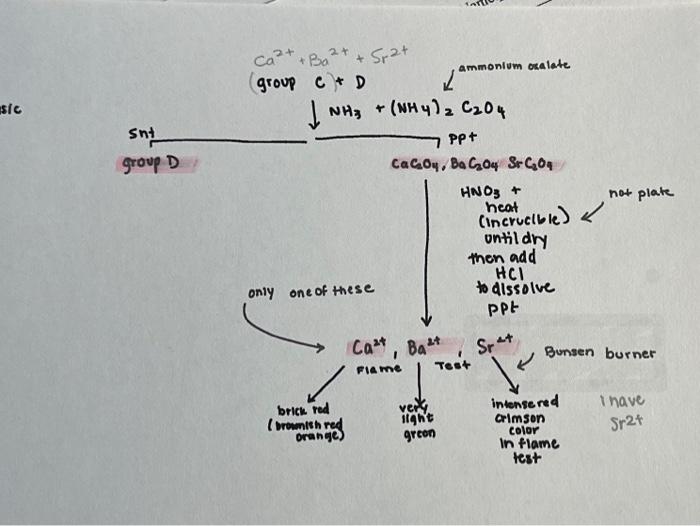 sic
Ca2+ + Ba2+ + Sr2+
(group C) + D
ammonium oxalate
NH3 + (NH4)2 C2O4
Snt
ppt
group D
CaC2O4, BaC2O4 SrC2O4
HNO3 +
heat
(incrucible)
until dry
then add
HCl
to dissolve
ppt
hot plate
only one of these
Ca2+, Ba2+, Sr2+
Flame Test
Bunsen burner
brick red
(brownish red
orange)
very
light
green
intense red
crimson
color
in flame
test
I have
Sr2+